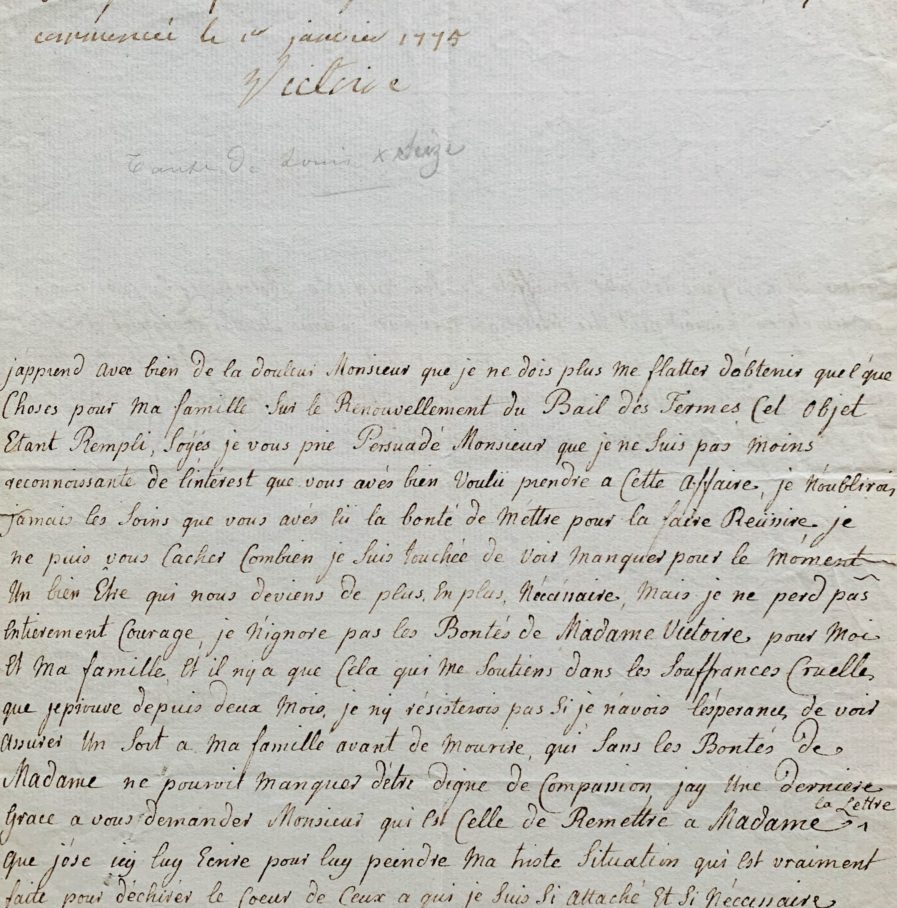 commencée le 1er janvier 1775
Victoire
tante de Louis Seize
j'apprend avec bien de la douleur Monsieur que je ne dois plus me flatter d'obtenir quelque
Choses pour ma famille Sur le Renouvellement du Bail des Fermes, Cet objet
Etant Rempli, Soyés je vous prie Persuadé Monsieur que je ne Suis pas moins
reconnoissante de l'intérest que vous avés bien Voulû prendre a Cette Affaire, je N'oublirois
jamais les Soins que vous avés Eü la bonté de Mettre pour la faire Reüssire, je
ne puis vous Cacher Combien je Suis touchée de Voir Manquer pour le Moment
Un bien Etre qui nous deviens de plus, En plus, Nécessaire, Mais je ne perd pas
Entierement Courage, je N'ignore pas les Bontés de Madame Victoire pour Moi
Et Ma famille, Et il n'y a que Cela qui Me Soutiens dans les Souffrances Cruelle,
que j'éprouve depuis deux Mois, je n'y résisterois pas Si je n'avois l'ésperance, de voir
Assurer Un Sort a Ma famille avant de Mourire, qui Sans les Bontés de
Madame ne pouroit Manquer d'être digne de Compassion j'ay Une derniere
Grace a vous demander Monsieur qui Est Celle de Remettre a Madame la Lettre
que j'óse icy luy Ecrire pour luy peindre Ma triste Situation qui Est vraiment
faite pour déchirér le Coeur de Ceux a qui je Suis Si attaché Et Si Nécessaire